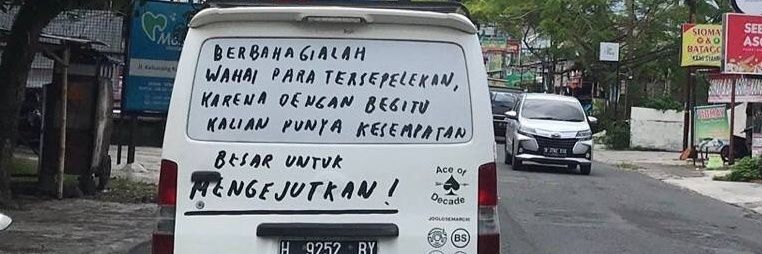 BERBAHAGIALAH
WAHAI PARA TERSEPELEKAN,
KARENA DENGAN BEGITU
KALIAN PUNYA KESEMPATAN
BESAR UNTUK
MENGEJUTKAN!
Ace of
Decade
JOGLOSEMARCH!
BS
H 9252 BY
SIOMAY
&
BATAGOR